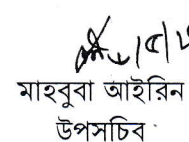 মাহবুবা আইরিন
উপসচিব